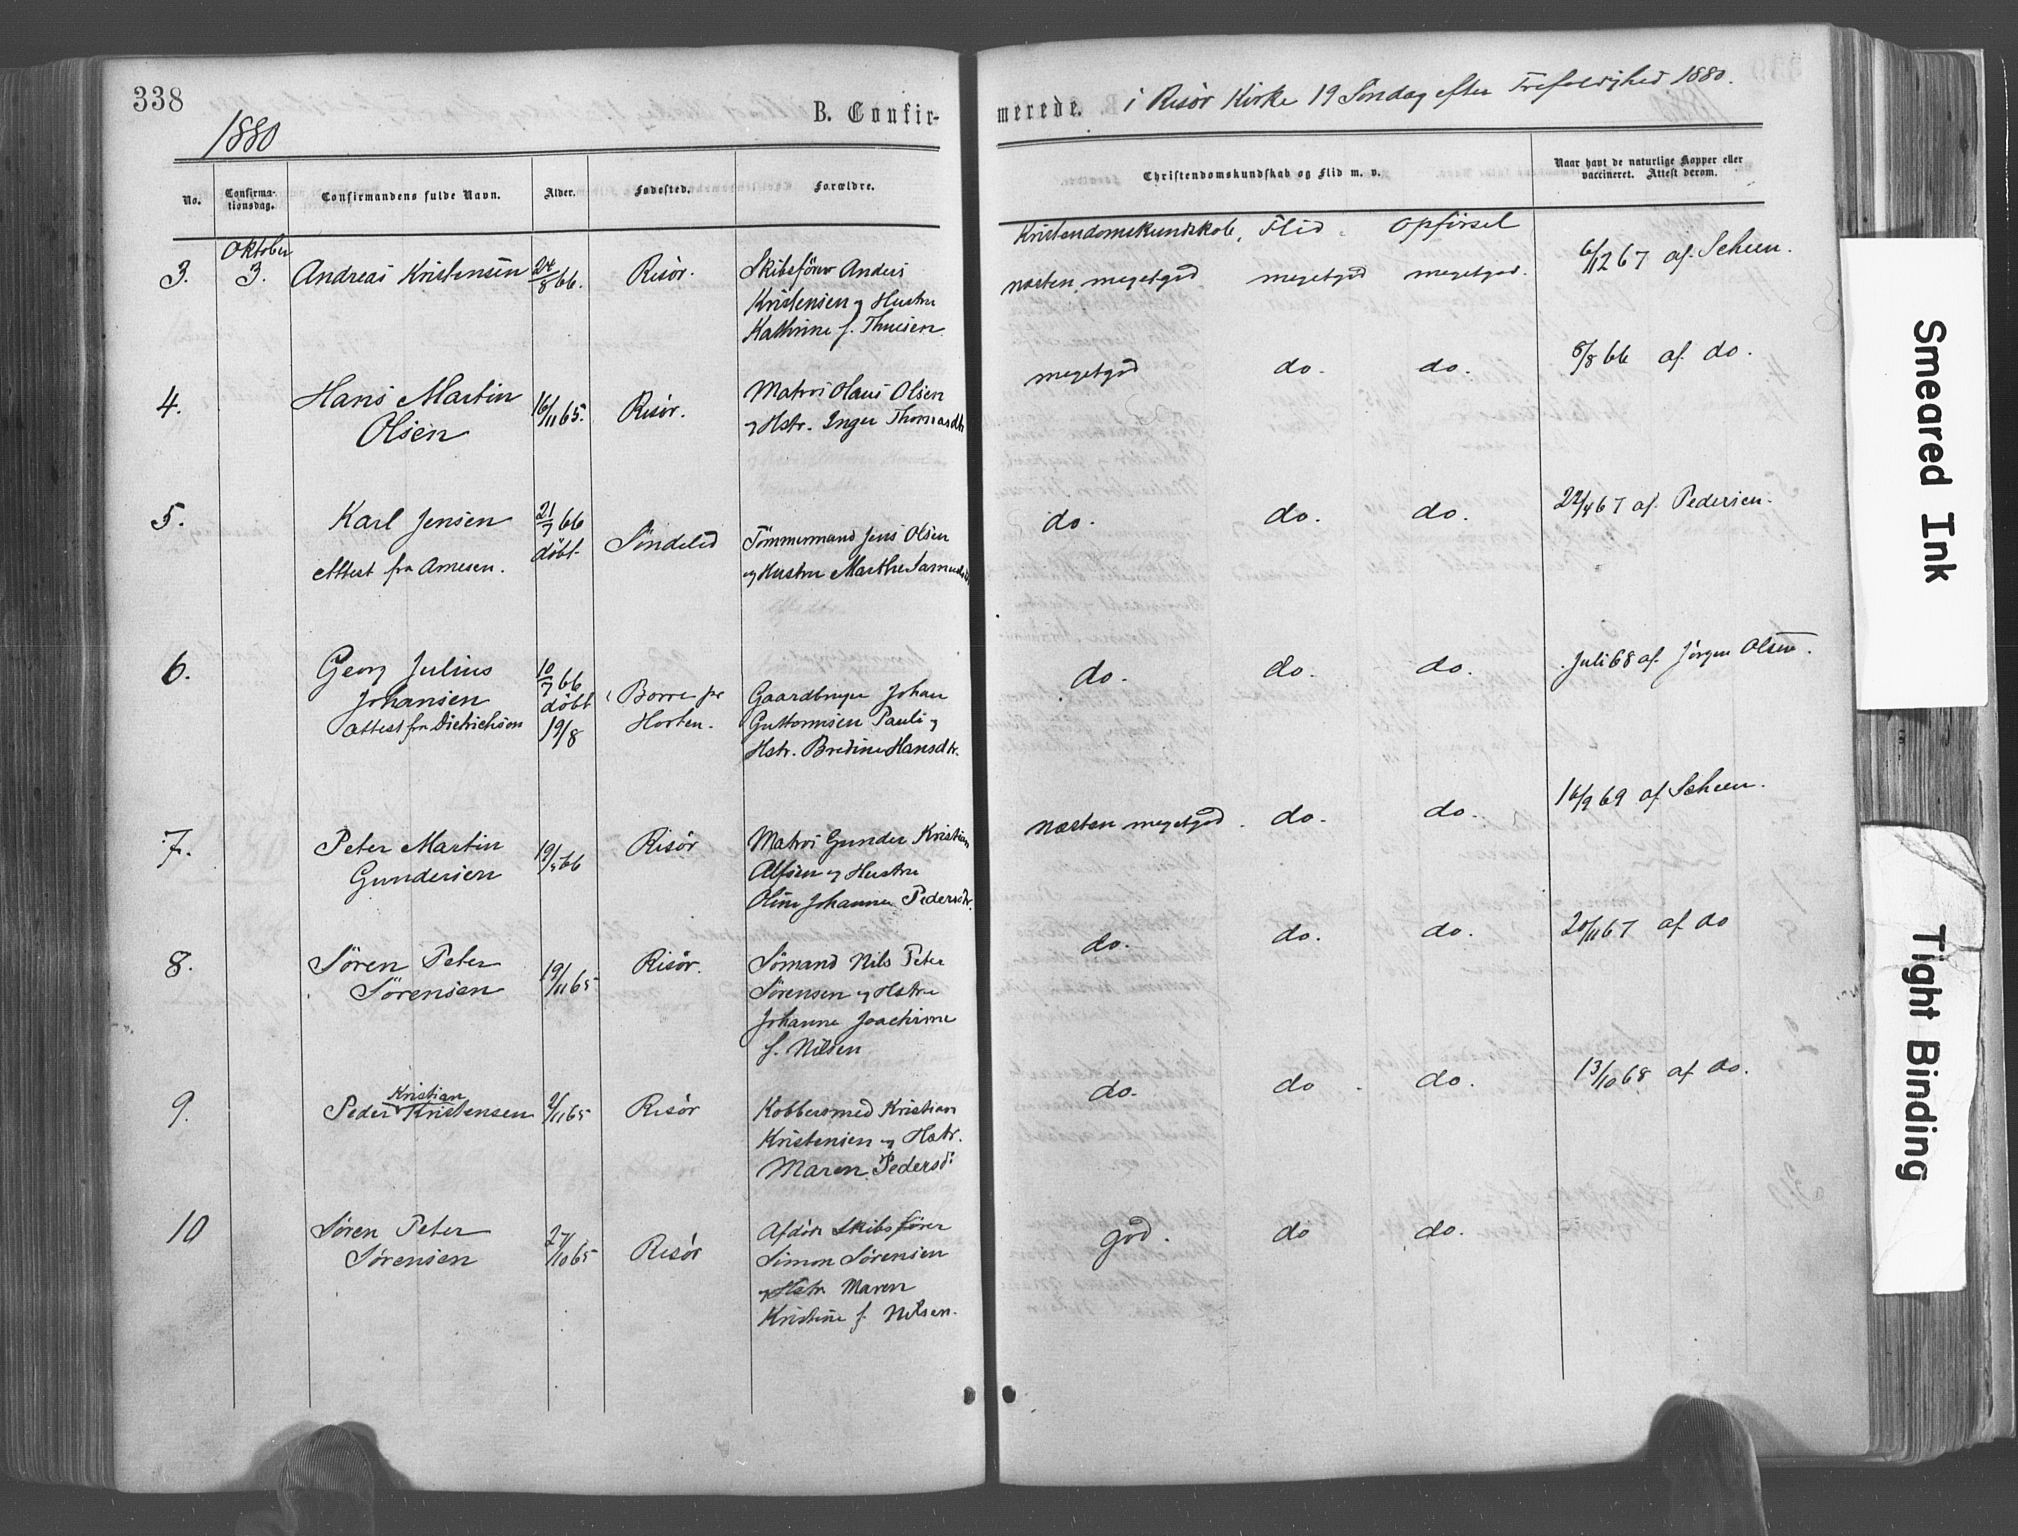 338
1880
B. Confir-
merede. i Risør Kirke 19 Søndag efter Trefoldighed 1880.
No.
Confirma-
tionsdag.
Confirmandens fulde Navn.
Alder.
Fødested.
Forældre.
Christendomskundskab og Flid m. v.
Naar havt de naturlige Kopper eller
vaccineret. Attest derom.
Kristendomskundskab. Flid. Opførsel
Oktober
3. 3. Andreas Kristensen 24/8 66. Risør. Skibsfører Anders
Kristensen og Hustru
Kathrine f. Thuesen
næsten megetgod megetgod megetgod. 6/12 67 af Scheen.
4. Hans Martin
Olsen
16/11 65. Risør. Matros Hans Olsen
og Hstr. Inger Thomasdtr
megetgod do. do. 8/8 66 af do.
5. Karl Jensen
Attest fra Arnesen.
21/7 66
døbt
Søndeled
Tømmermand Jens Olsen
og Hustru Marthe Samuelsd
do. do. do. 22/4 67 af Pedersen.
6. Georg Julius
Johansen
Attest fra Dietrichson
10/7 66
døbt
19/8
Borre pr
Horten.
Gaardbruger Johan
Guttormsen Pauli og
Hstr. Bredine Hansdtr.
do. do. do. Juli 68 af Jørgen Olsen.
7. Peter Martin
Gundersen
19/5 66 Risør Matros Gunder Kristian
Alfsen og Hustru
Oline Johanne Pedersdtr.
næsten megetgod. do. do. 16/9 69 af Scheen.
8. Søren Peter
Sørensen
19/11 65 Risør. Sømand Nils Peter
Sørensen og Hstru
Johanne Joachime
f. Nilsen
do. do. do. 20/11 67 af do
9. Kristian
Peder Kristensen
/11 65 Risør Kobbersmed Kristian
Kristensen og Hstr.
Maren Pedersd:
do. do. do. 13/10 68 af do.
10 Søren Peter
Sørensen
27/10 65 Risør Afdøde Skibsfører
Simon Sørensen
og Hstr Maren
Kristine f. Nilsen.
god. do do.
Smeared Ink
Tight Binding